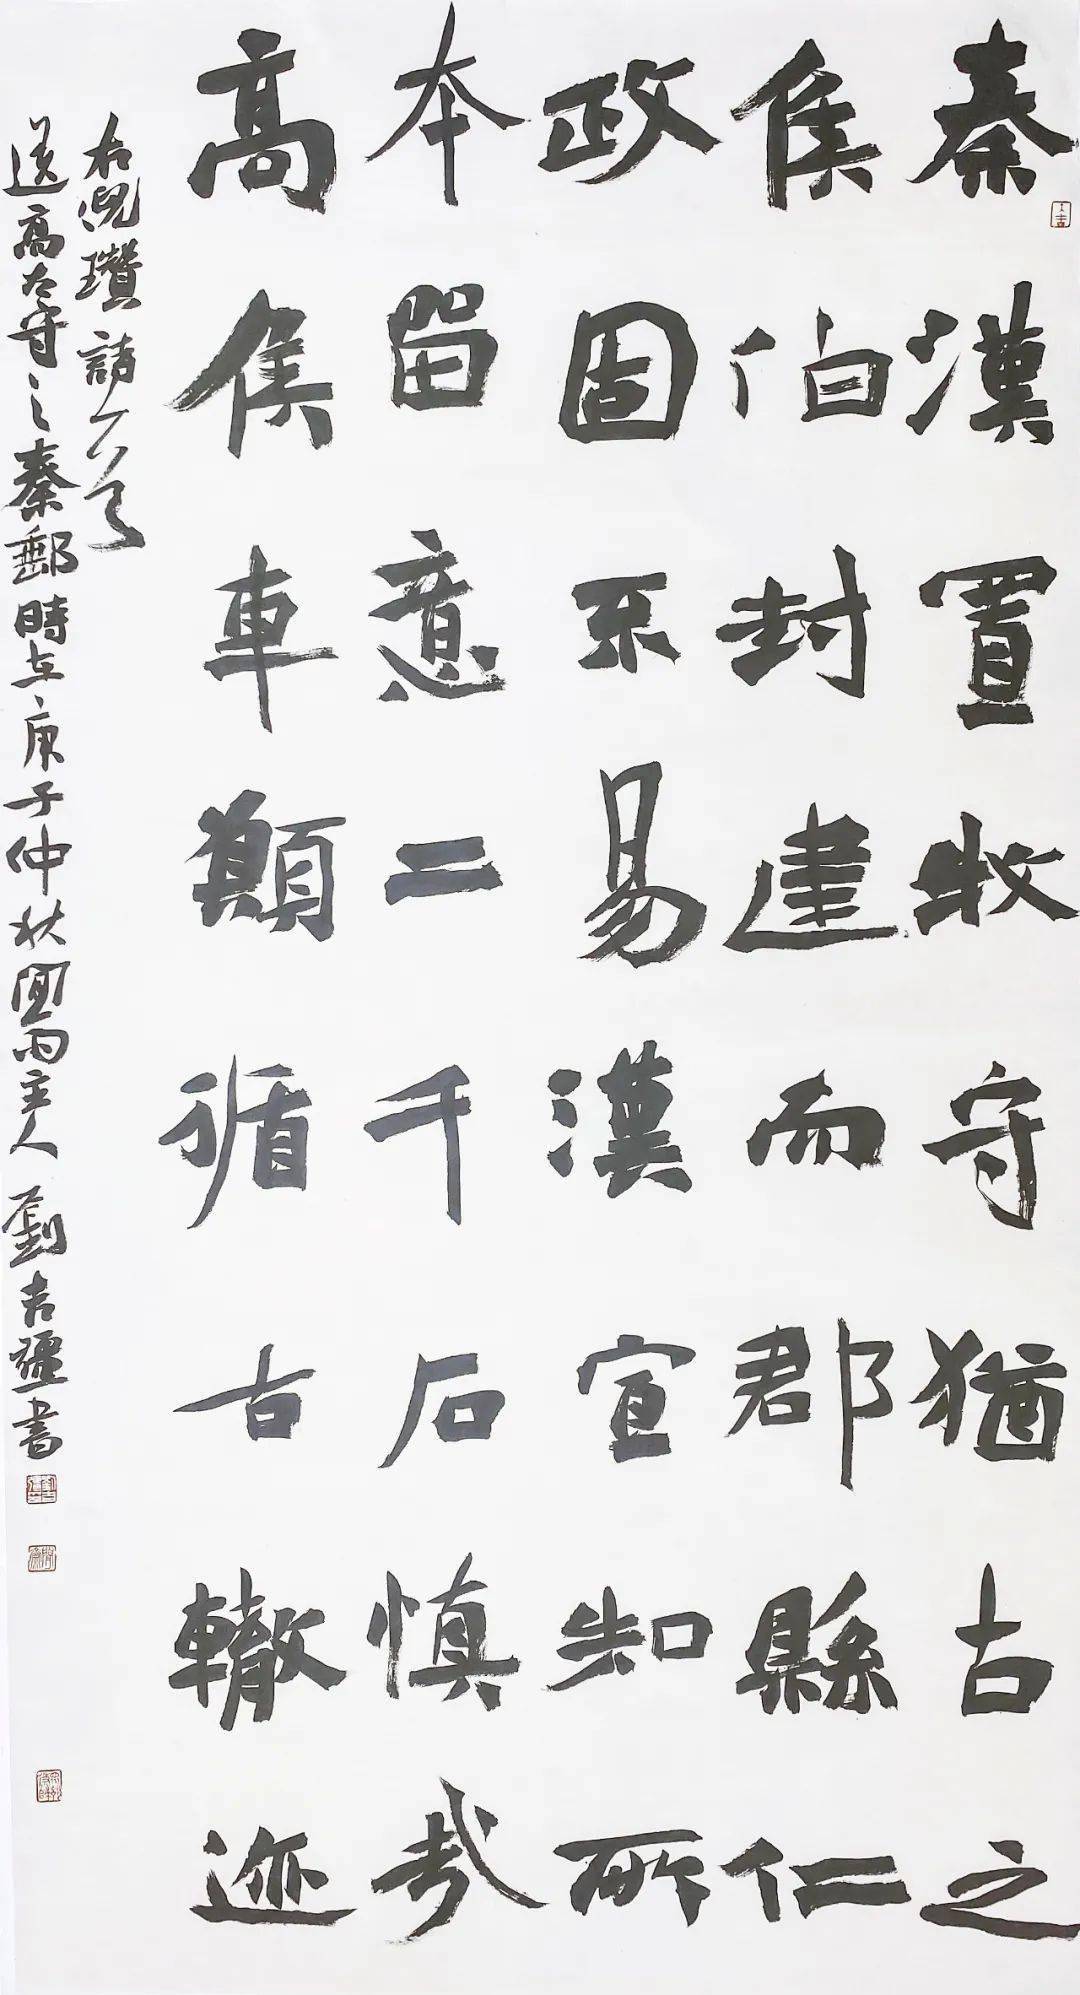 秦漢置牧守猶古之
侯伯封建而郡縣仁
政固不易漢宣知所
本留意二千石慎哉
高侯車顛循古轍迹
右倪瓚詩一首
送高太守之秦郵時在庚子仲秋雨主人劉吉疆書